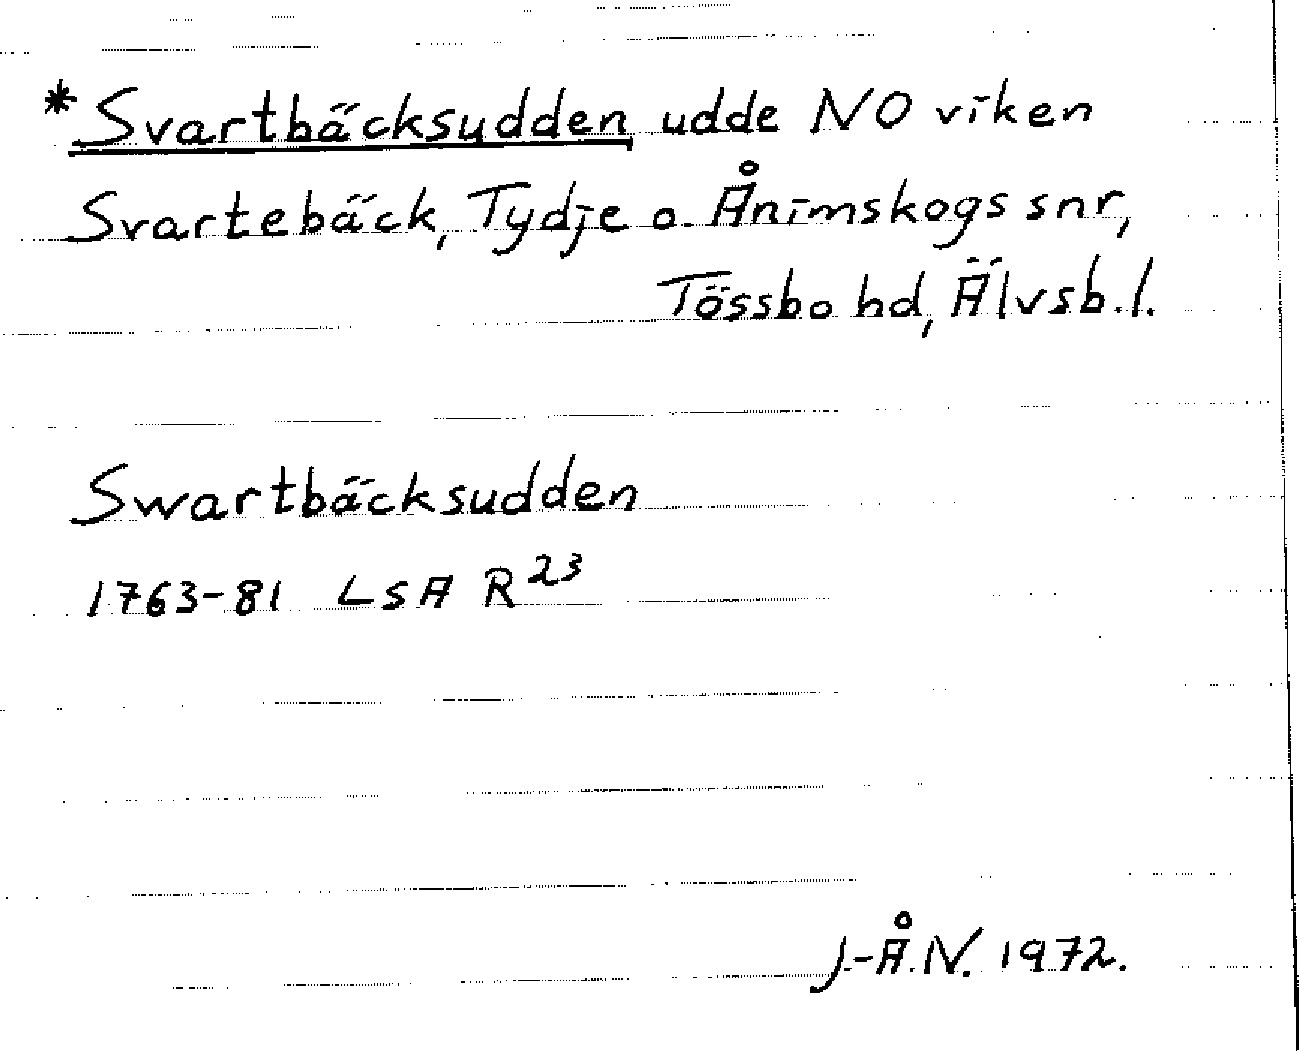 *Svartbäcksudden udde NO viken
Svartebäck, Tydje o. Ånimskogs snr,
Tössbo hd, Älvsb. l.
Swartbäcksudden
1763-81 LSA R 23
J-Å.N. 1972.